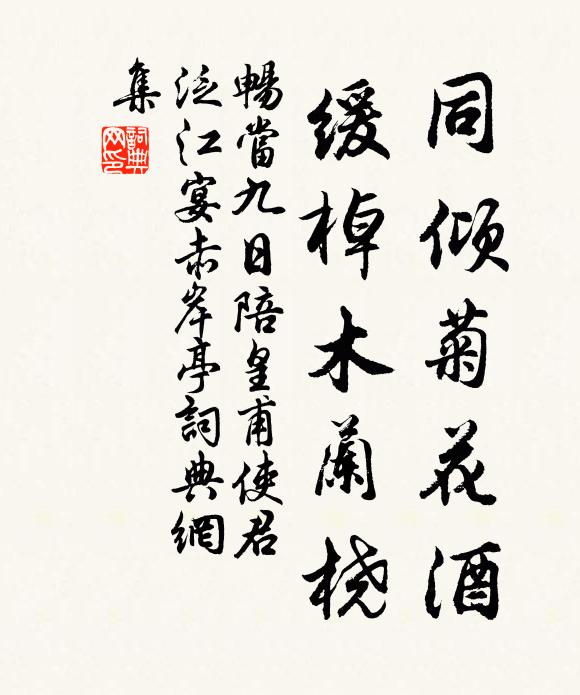 同倾菊花酒
缓棹木蘭桡
暢當九日陪皇甫使君
泛江宴赤岸亭詞典網
集
詞典网印